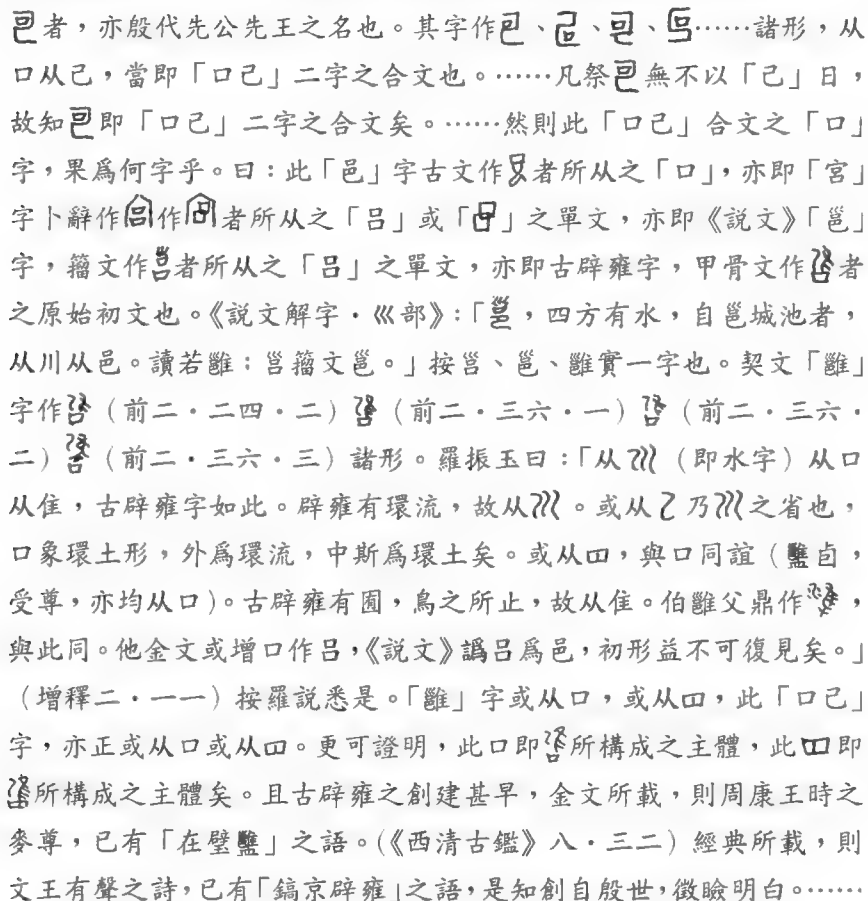 者，亦殷代先公先王之名也。其字作、、、……諸形，从
口从己，當即「口己」二字之合文也。……凡祭無不以「己」日，
故知即「口己」二字之合文矣。……然則此「口己」合文之「口」
字，果爲何字乎。曰：此「邑」字古文作者所从之「口」，亦即「宮」
字卜辭作作者所从之「吕」或「」之單文，亦即《說文》「邕」
字，籀文作者所从之「吕」之單文，亦即古辟雍字，甲骨文作者
之原始初文也。《說文解字·巛部》：「，四方有水，自邕城池者，
从川从邑。讀若雝；邕籀文邕。」按邕、邕、雝實一字也。契文「雝」
字作（前二·二四·二）（前二·三六·一）（前二·三六·
二）（前二·三六·三）諸形。羅振玉曰：「从（即水字）从口
从隹，古辟雍字如此。辟雍有環流，故从。或从乃之省也，
口象環土形，外爲環流，中斯爲環土矣。或从，與口同誼（卣，
受尊，亦均从口）。古辟雍有囿，鳥之所止，故从隹。伯雝父鼎作，
與此同。他金文或增口作吕，《說文》譌吕爲邑，初形益不可復見矣。」
（增釋二·一一）按羅說悉是。「雝」字或从口，或从，此「口己」
字，亦正或从口或从。更可證明，此口即所構成之主體，此即
所構成之主體矣。且古辟雍之創建甚早，金文所載，則周康王時之
麥尊，已有「在璧」之語。（《西清古鑑》八·三二）經典所載，則
文王有聲之詩，已有「鎬京辟雍」之語，是知創自殷世，徵驗明白。……